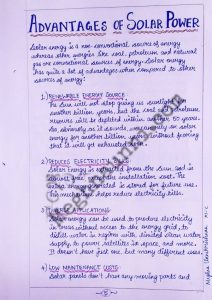 ADVANTAGES OF SOLAR POWER
Solar energy is a non-conventional source of energy
whereas other energies like coal, petroleum and natural
gas are conventional sources of energy. Solar energy
has quite a lot of advantages when compared to other
sources of energy:
1) RENEWABLE ENERGY SOURCE
The Sun will not stop giving us sunlight for
another billion years, but the coal and petroleum
reserves will be depleted within another 50 years.
So, obviously as it sounds, we can rely on solar
energy for another billion years without fearing
that it will get exhausted
2) REDUCES ELECTRICITY
Solar energy is extracted from the sun, and is
almost free, except the installation cost. The
extra energy generated is stored for future use.
This much helps reduce electricity bills.
APPLICATIONS
energy can be used to produce electricity
in areas without access to the energy grid, to
distill water in regions with limited clean water
supply, to power satellites in space, and more.
It doesn't have just one, but many different uses.
4) LOW MAINTENANCE COSTS
Solar panels don't have any moving parts and
5